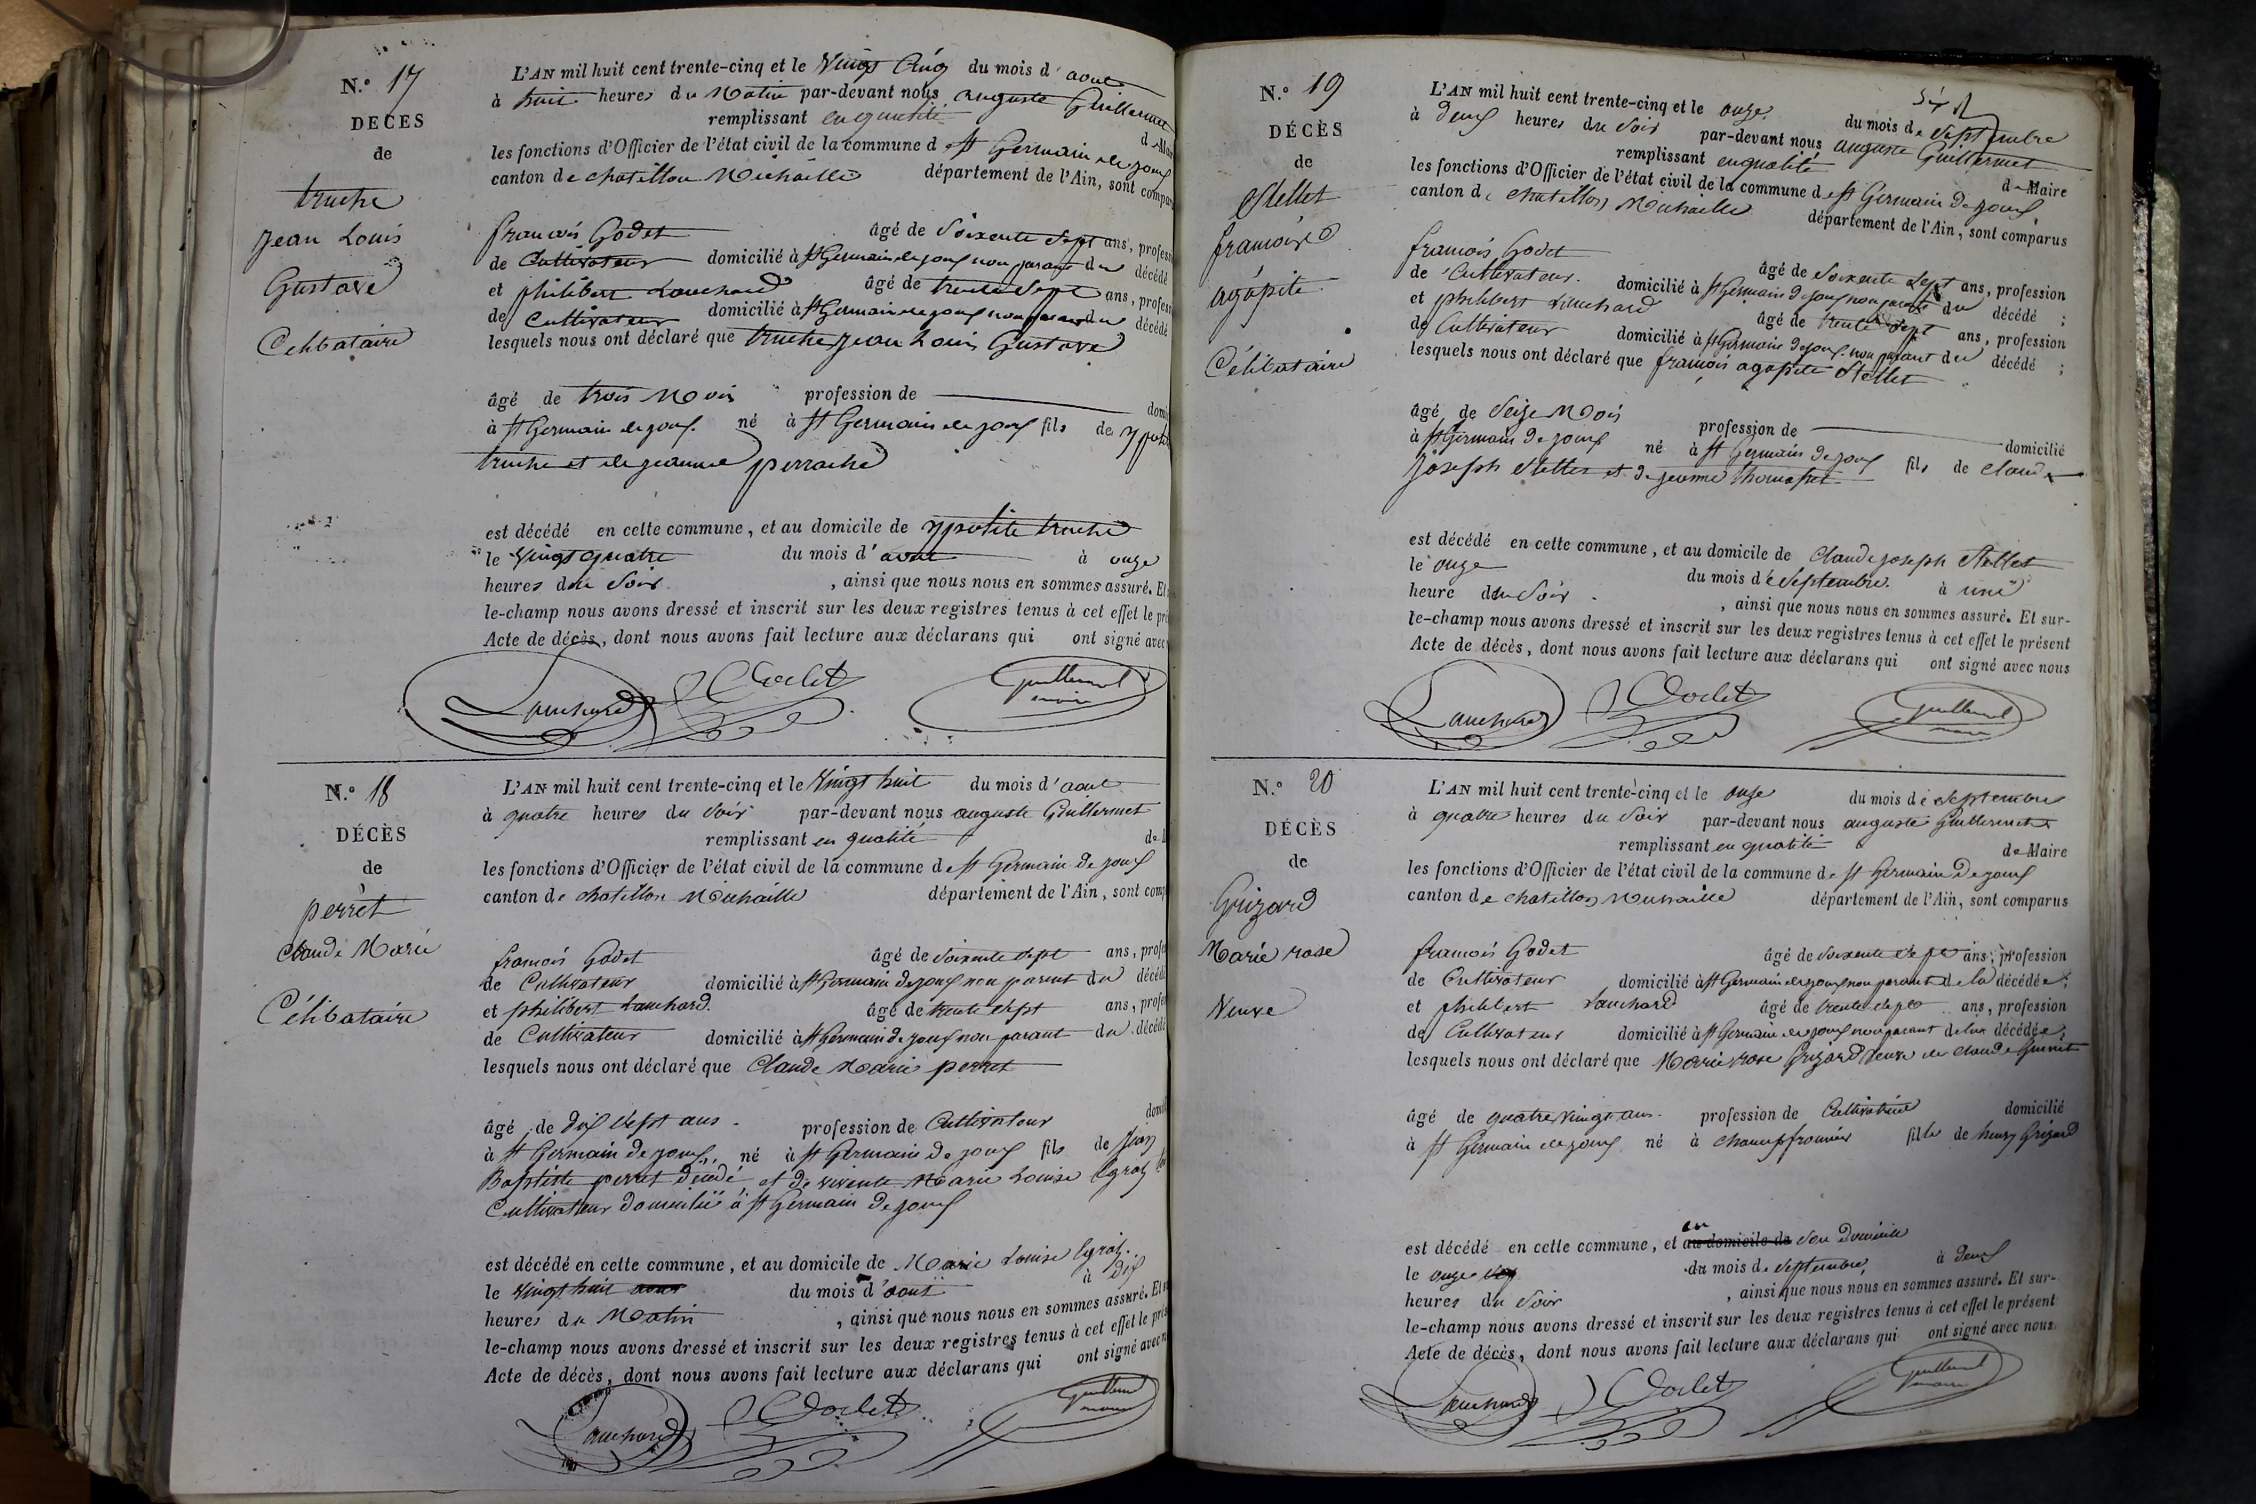 N.° 17
DÉCÈS
de
truche
jean Louis
Gustave
Célibataire
L'AN mil huit cent trente-cinq et le vingt cinq du mois d'aout
à huit heures du Matin par-devant nous auguste Guillermet
remplissant en qualité
les fonctions d'Officier de l'état civil de la commune de st Germain de joux
canton de chatillon Michaille département de l'Ain, sont
françois Godet âgé de Soixente Sept ans,
de Cultivateur domicilié à st Germain de joux non parant du décédé
et philibert Louchard âgé de trente Sept ans,
de Cultivateur domicilié à st Germain de joux non parant du décédé
lesquels nous ont déclaré que truche jean Louis Gustave
âgé de trois Mois profession de
à st Germain de joux né à st Germain de joux fils de
truche et de jeanne perrache
est décédé en cette commune, et au domicile de ypolite truche
le vingt quatre du mois d'aout à onze
heures du Soir, ainsi que nous nous en sommes assuré. Et
le-champ nous avons dressé et inscrit sur les deux registres tenus à cet effet le
Acte de décès, dont nous avons fait lecture aux déclarans qui ont signé avec
Louchard Godet Guillermet
maire
N.° 18
DÉCÈS
de
perret
Claude Marie
Célibataire
L'AN mil huit cent trente-cinq et le vingt huit du mois d'aout
à quatre heures du Soir par-devant nous auguste Guillermet
remplissant en qualité de
les fonctions d'Officier de l'état civil de la commune de st Germain de joux
canton de chatillon Michaille département de l'Ain, sont
françois Godet âgé de Soixente Sept ans,
de Cultivateur domicilié à st Germain de joux non parent du
et philibert Louchard âgé de trente Sept ans,
de Cultivateur domicilié à st Germain de joux non parant du décédé
lesquels nous ont déclaré que Claude Marie perret
âgé de dix Sept ans profession de Cultivateur
à st Germain de joux, né à st Germain de joux fils de Jean
Baptiste perret décédé, et de vivente Marie Louise
Cultivateur domicilié à st Germain de joux
est décédé en cette commune, et au domicile de Marie Louise
le vingt huit du mois d'aout à dix
heures du Matin, ainsi que nous nous en sommes assuré. Et
le-champ nous avons dressé et inscrit sur les deux registres tenus à cet effet le
Acte de décès, dont nous avons fait lecture aux déclarans qui ont signé avec
Louchard Godet Guillermet
maire
N.° 19
DÉCÈS
de
Stellet
françois
agapite
Célibataire
L'AN mil huit cent trente-cinq et le onze du mois de Septembre
à deux heures du Soir par-devant nous auguste Guillermet
remplissant en qualité de Maire
les fonctions d'Officier de l'état civil de la commune de st Germain de joux
canton de chatillon Michaille département de l'Ain, sont comparus
françois Godet âgé de Soixente Sept ans, profession
de Cultivateur domicilié à st Germain de joux non parant du décédé ;
et philibert Louchard âgé de trente Sept ans, profession
de Cultivateur domicilié à st Germain de joux non parant du décédé ;
lesquels nous ont déclaré que françois agapite Stellet
âgé de Seize Mois profession de domicilié
à st Germain de joux né à st Germain de joux fils de Claude
joseph Stellet et de jeanne thomasset
est décédé en cette commune, et au domicile de Claude joseph Stellet
le onze du mois de Septembre à une
heure du Soir, ainsi que nous nous en sommes assuré. Et sur-
le-champ nous avons dressé et inscrit sur les deux registres tenus à cet effet le présent
Acte de décès, dont nous avons fait lecture aux déclarans qui ont signé avec nous
Louchard Godet Guillermet
maire
N.° 20
DÉCÈS
de
Grizard
Marie rose
Veuve
L'AN mil huit cent trente-cinq et le onze du mois de Septembre
à quatre heures du Soir par-devant nous auguste Guillermet
remplissant en qualité de Maire
les fonctions d'Officier de l'état civil de la commune de st Germain de joux
canton de chatillon Michaille département de l'Ain, sont comparus
françois Godet âgé de Soixente Sept ans, profession
de Cultivateur domicilié à st Germain de joux non parant de la décédée ;
et philibert Louchard âgé de trente Sept ans, profession
de Cultivateur domicilié à st Germain de joux non parant de la décédée ;
lesquels nous ont déclaré que Marie rose Grizard veuve de Claude
âgé de quatre vingt ans profession de Cultivatrice domicilié
à st Germain de joux né à champfromier fille de henry Grizard
est décédé en cette commune, et au domicile de en Son Domicile
le onze du mois de Septembre à deux
heures du Soir, ainsi que nous nous en sommes assuré. Et sur-
le-champ nous avons dressé et inscrit sur les deux registres tenus à cet effet le présent
Acte de décès, dont nous avons fait lecture aux déclarans qui ont signé avec nous
Louchard Godet Guillermet
maire